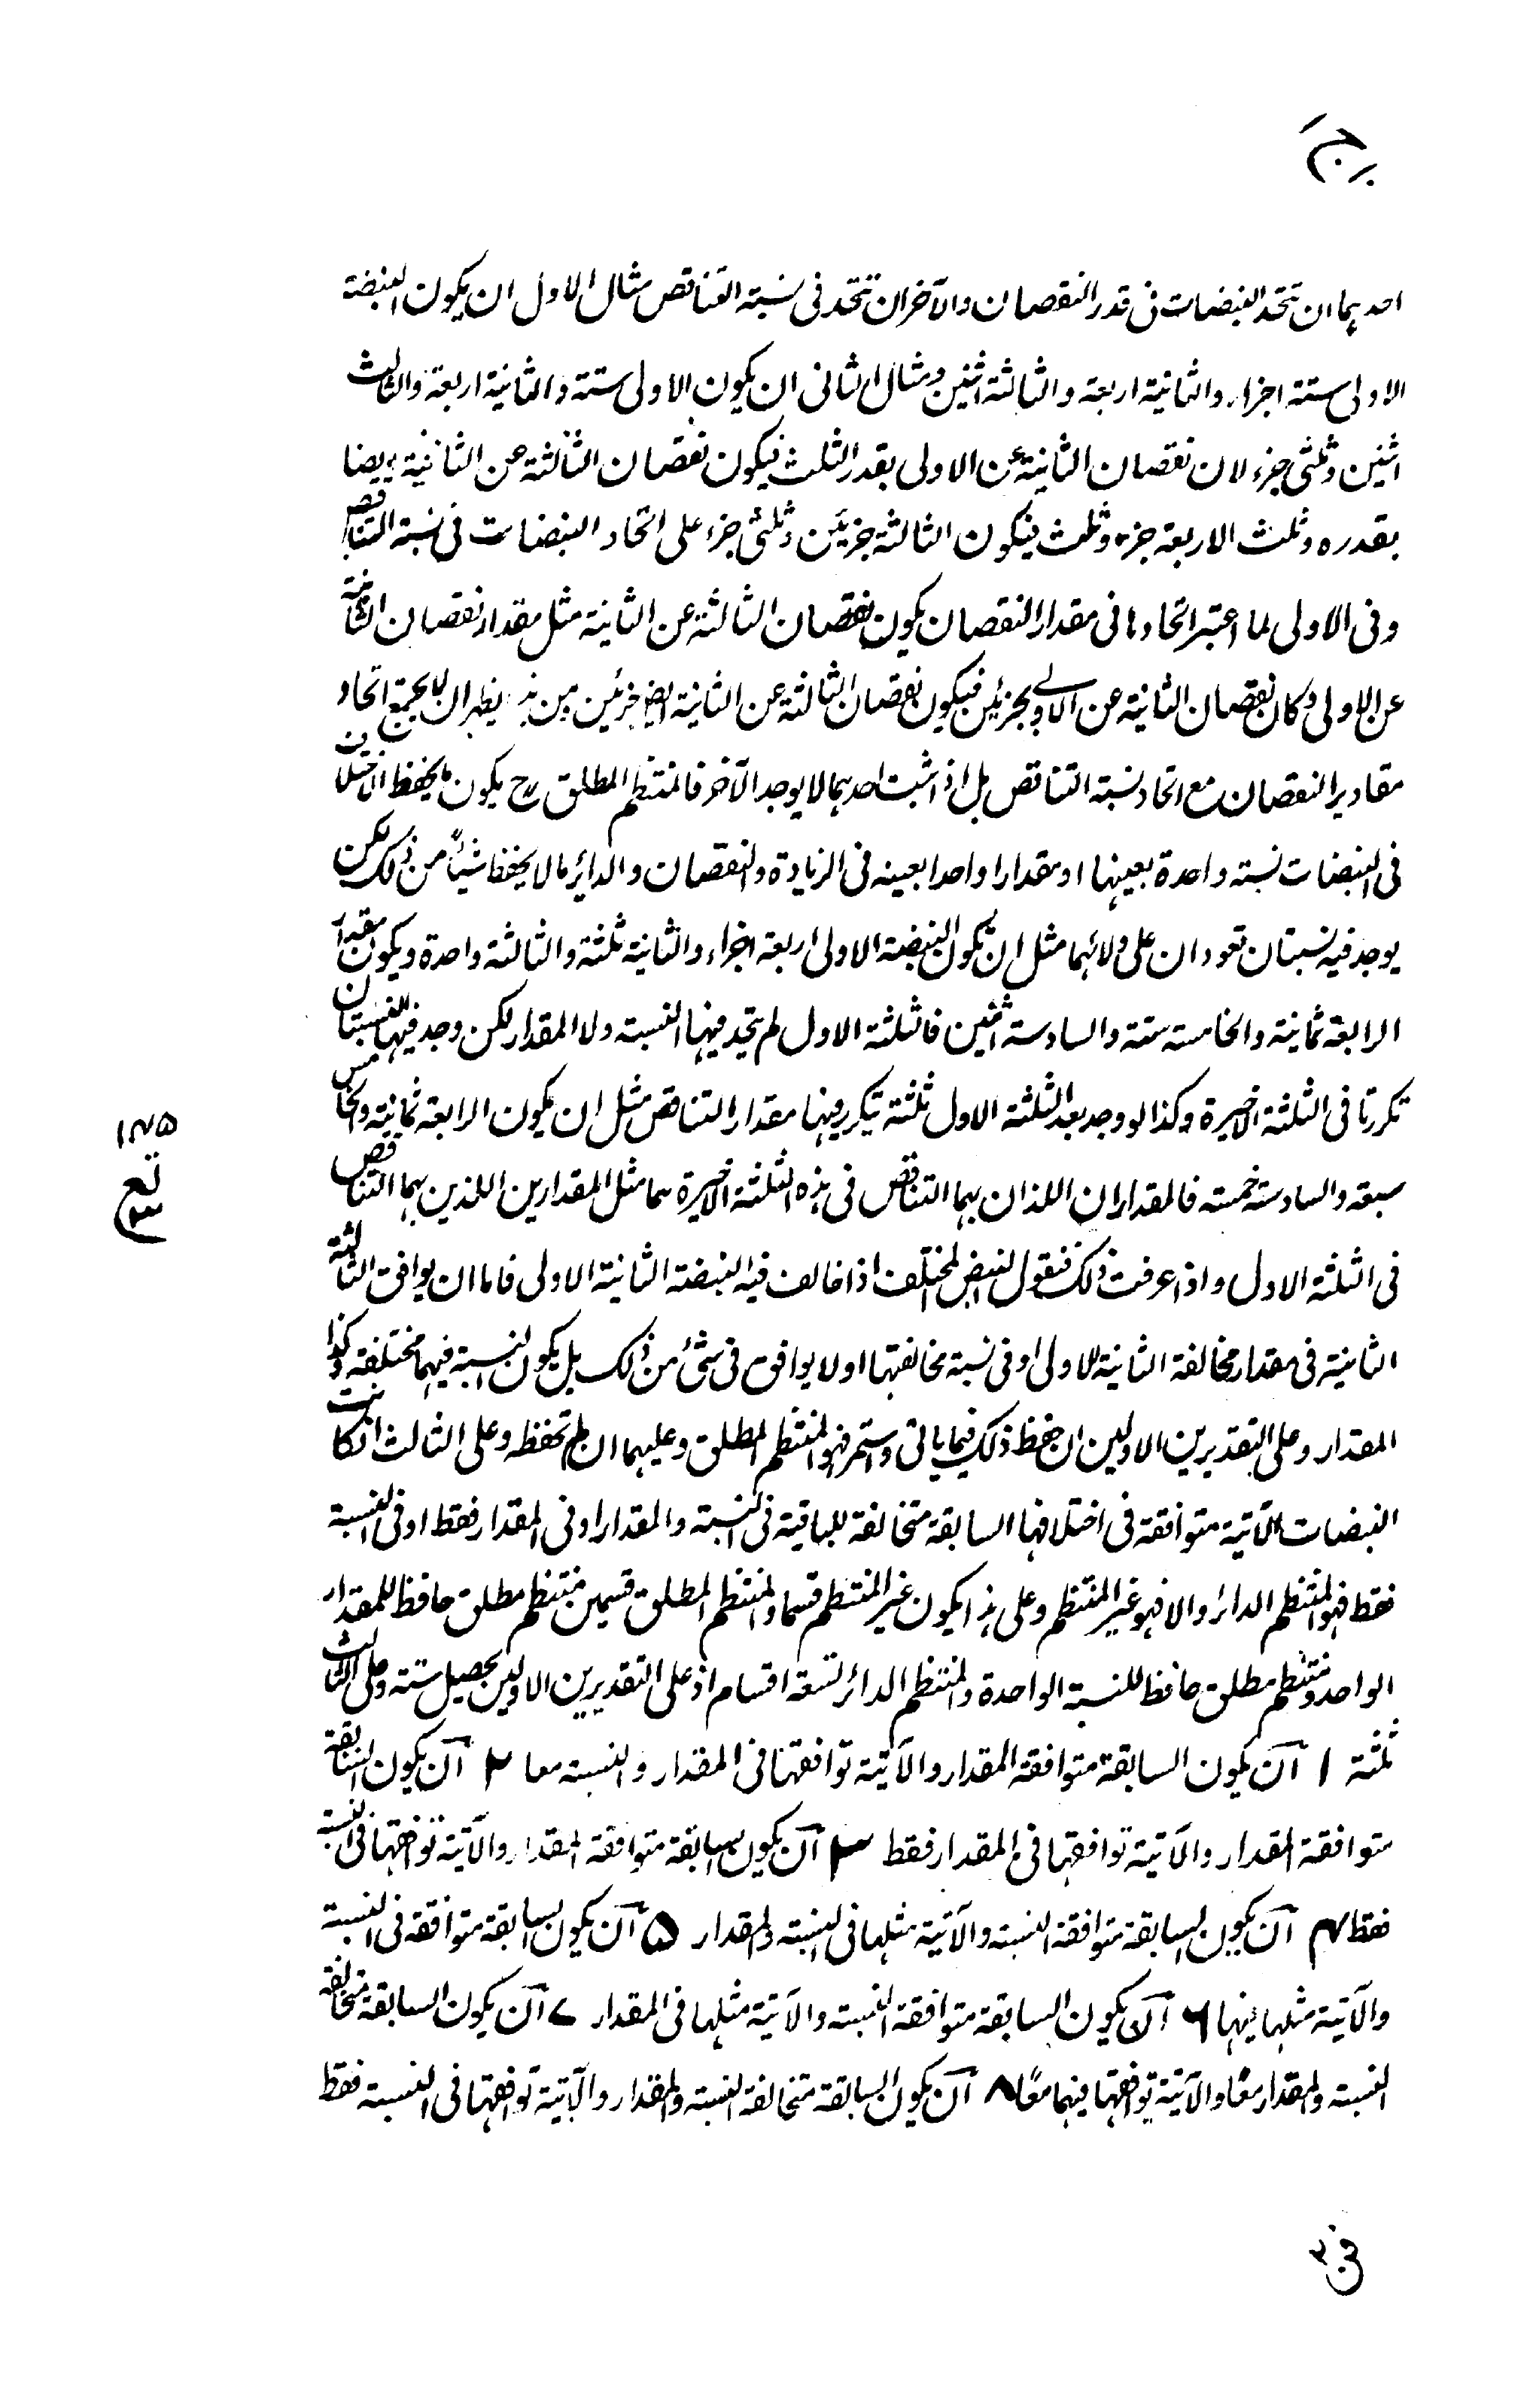 احدہما ان تتحد النبضات فی قدر النقصان والآخران تتحد فی نسبۃ التناقص مثال الاول ان یکون النبضۃ
الاولی ستۃ اجزاء والثانیۃ اربعۃ والثالثۃ اثنین ومثال الثانی ان یکون الاولی ستۃ والثانیۃ اربعۃ والثالث
اثنین وثلثی جزء لان نقصان الثانیۃ عن الاولی بقدر الثلث فیکون نقصان الثالثۃ عن الثانیۃ ایضا
بقدرہ وثلث الاربعۃ جزء وثلث فیکون الثالثۃ جزئین وثلثی جزء علی اتحاد النبضات فی نسبۃ التناقص
وفی الاولی لما اعتبر اتحادہا فی مقدار النقصان یکون نقصان الثالثۃ عن الثانیۃ مثل مقدار نقصان الثانیۃ
عن الاولی وکان نقصان الثانیۃ عن الاولی بجزئین فیکون نقصان الثالثۃ عن الثانیۃ ایض جزئین ومن ہذا یظہر ان لا یجتمع اتحاد
مقادیر النقصان مع اتحاد نسبۃ التناقص بل اذا ثبت احدہما لا یوجد الآخر فالمنتظم المطلق ح یکون ما یحفظ الاختلاف
فی النبضات نسبۃ واحدۃ بعینہا او مقدارا واحدا بعینہ فی الزیادۃ والنقصان والدائر ما لا یحفظ شیئاً من ذلک لکن
یوجد فیہ نسبتان تعودان علی ولائہما مثل ان تکون النبضۃ الاولی اربعۃ اجزاء والثانیۃ ثلثۃ والثالثۃ واحدۃ ویکون مقدار
الرابعۃ ثمانیۃ والخامسۃ ستۃ والسادسۃ اثنین فالثلثۃ الاول لم یتحد فیہا النسبۃ ولا المقدار لکن وجد فیہا النسبتان
تکررتا فی الثلثۃ الاخیرۃ وکذا لو وجد بعد الثلثۃ الاول ثلثۃ یتکرر فیہا مقدار التناقص مثل ان یکون الرابعۃ ثمانیۃ والخامس
سبعۃ والسادسۃ خمسۃ فالمقداران اللذان بہما التناقص فی ہذہ الثلثۃ الاخیرۃ ہما مثل المقدارین اللذین بہما التناقص
فی الثلثۃ الاول واذا عرفت ذلک فنقول النبض المختلف اذا خالف فیہ النبضۃ الثانیۃ الاولی فاما ان یوافق الثالثۃ
الثانیۃ فی مقدار مخالفۃ الثانیۃ للاولی او فی نسبۃ مخالفتہا او لا یوافق فی شئ من ذلک بل یکون النسبۃ فیہما مختلفۃ وکذا
المقدار وعلی التقدیرین الاولین ان حفظ ذلک فیما یاتی واستمر فہو المنتظم المطلق وعلیہما ان لم تحفظہ وعلی الثالث انکانت
النبضات الآتیۃ متوافقۃ فی اختلافہا السابقۃ متخالفۃ للباقیۃ فی النسبۃ والمقدار او فی المقدار فقط او فی النسبۃ
فقط فہو المنتظم الدائر والا فہو غیر المنتظم وعلی ہذا یکون غیر المنتظم قسما والمنتظم المطلق قسمین منتظم مطلق حافظ للمقدار
الواحد ومنتظم مطلق حافظ للنسبۃ الواحدۃ والمنتظم الدائر تسعۃ اقسام اذ علی التقدیرین الاولین یحصل ستۃ وعلی الثالث
ثلثۃ ۱ آن یکون السابقۃ متوافقۃ المقدار والآتیۃ توافقہا فی المقدار والنسبۃ معا ۲ آن یکون السابقۃ
متوافقۃ المقدار والآتیۃ توافقہا فی المقدار فقط ۳ آن یکون السابقۃ متوافقۃ المقدار والآتیۃ توافقہا فی النسبۃ
فقط ۴ آن یکون السابقۃ متوافقۃ النسبۃ والآتیۃ مثلہا فی النسبۃ والمقدار ۵ آن یکون السابقۃ متوافقۃ فی النسبۃ
والآتیۃ مثلہا فیہا ۶ آن یکون السابقۃ متوافقۃ النسبۃ والآتیۃ مثلہا فی المقدار ۷ آن یکون السابقۃ متخالفۃ
النسبۃ والمقدار معًا والآتیۃ توافقہا فیہما معًا ۸ آن یکون السابقۃ متخالفۃ النسبۃ والمقدار والآتیۃ توافقہا فی النسبۃ فقط
۱۷۵